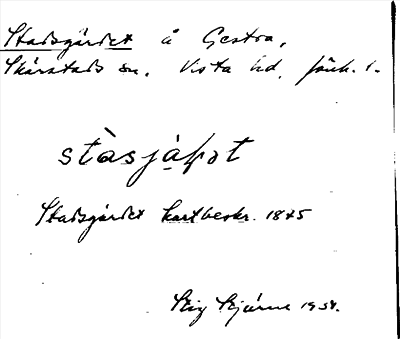 Stadsgärdet å Gestra,
Skärstads sn. Vista hd. Jönk. l.
stàsjạþət
Stadsgärdet kartbeskr. 1845
Stig Bjärne 1934.